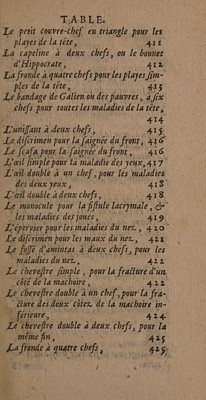 TABLE.
Le petit couvre-chef en triangle pour les
playes de la tête, 411
La capeline à deux chefs, ou le bonnet
d'Hippocrate, 412
La fronde à quatre chefs pour les playes sim-
ples de la tête, 413
Le bandage de Galien ou des pauvres, à six
chefs pour toutes les maladies de la tête,
414
L'unissant à deux chefs, 415
Le discrimen pour la saignée du front, 416
Le scafa pour la saignée du front, 416
L'œil simple pour la maladie des yeux, 417
L'œil double à un chef, pour les maladies
des deux yeux, 418
L'œil double à deux chefs, 418
Le monocule pour la fistule lacrymale, &
les maladies des joues, 419
L'épervier pour les maladies du nez, 420
Le discrimen pour les maux du nez, 421
Le fosse d'amintas à deux chefs, pour les
maladies du nez, 422
Le chevestre simple, pour la fracture d'un
côté de la machoire, 422
Le chevestre double à un chef, pour la fra-
cture des deux côtez de la machoire in-
férieure, 424
Le chevestre double à deux chefs, pour la
même fin, 425
La fronde à quatre chefs, 425